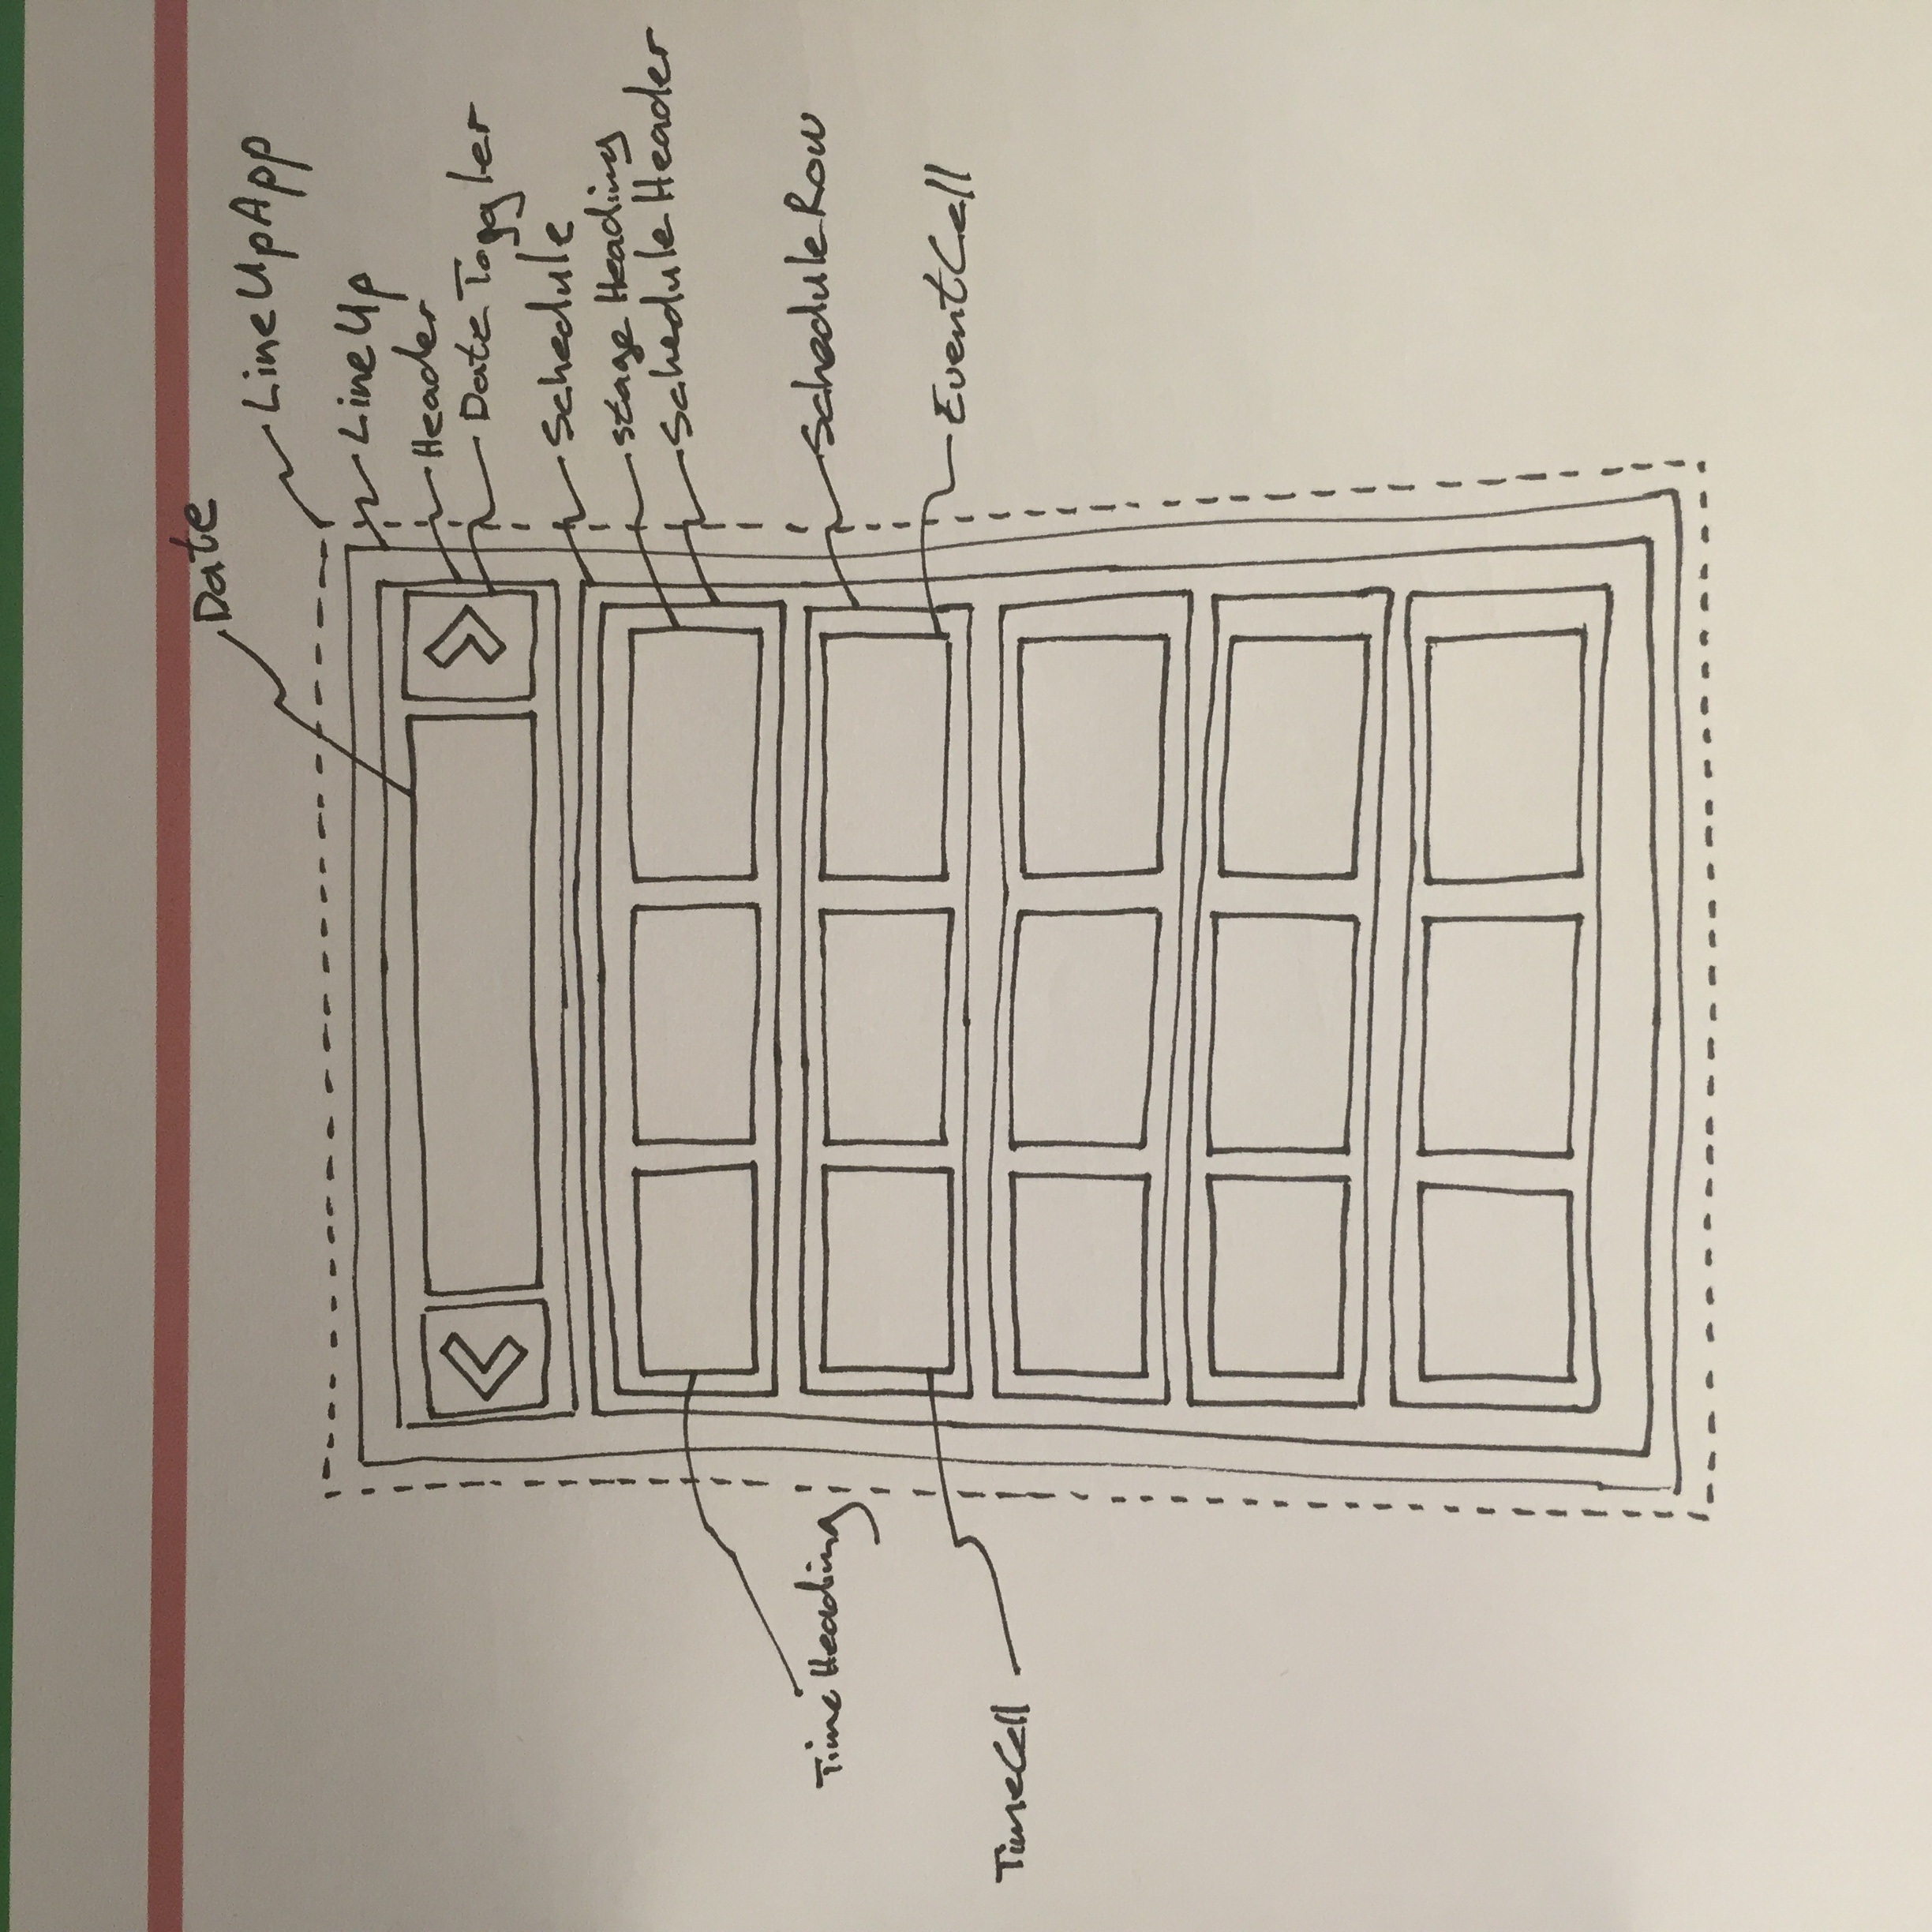 Date
LineUpApp
LineUp
Header
Date Toggler
Schedule
Stage Heading
Schedule Header
Time Heading
Schedule Row
EventCell
TimeCell